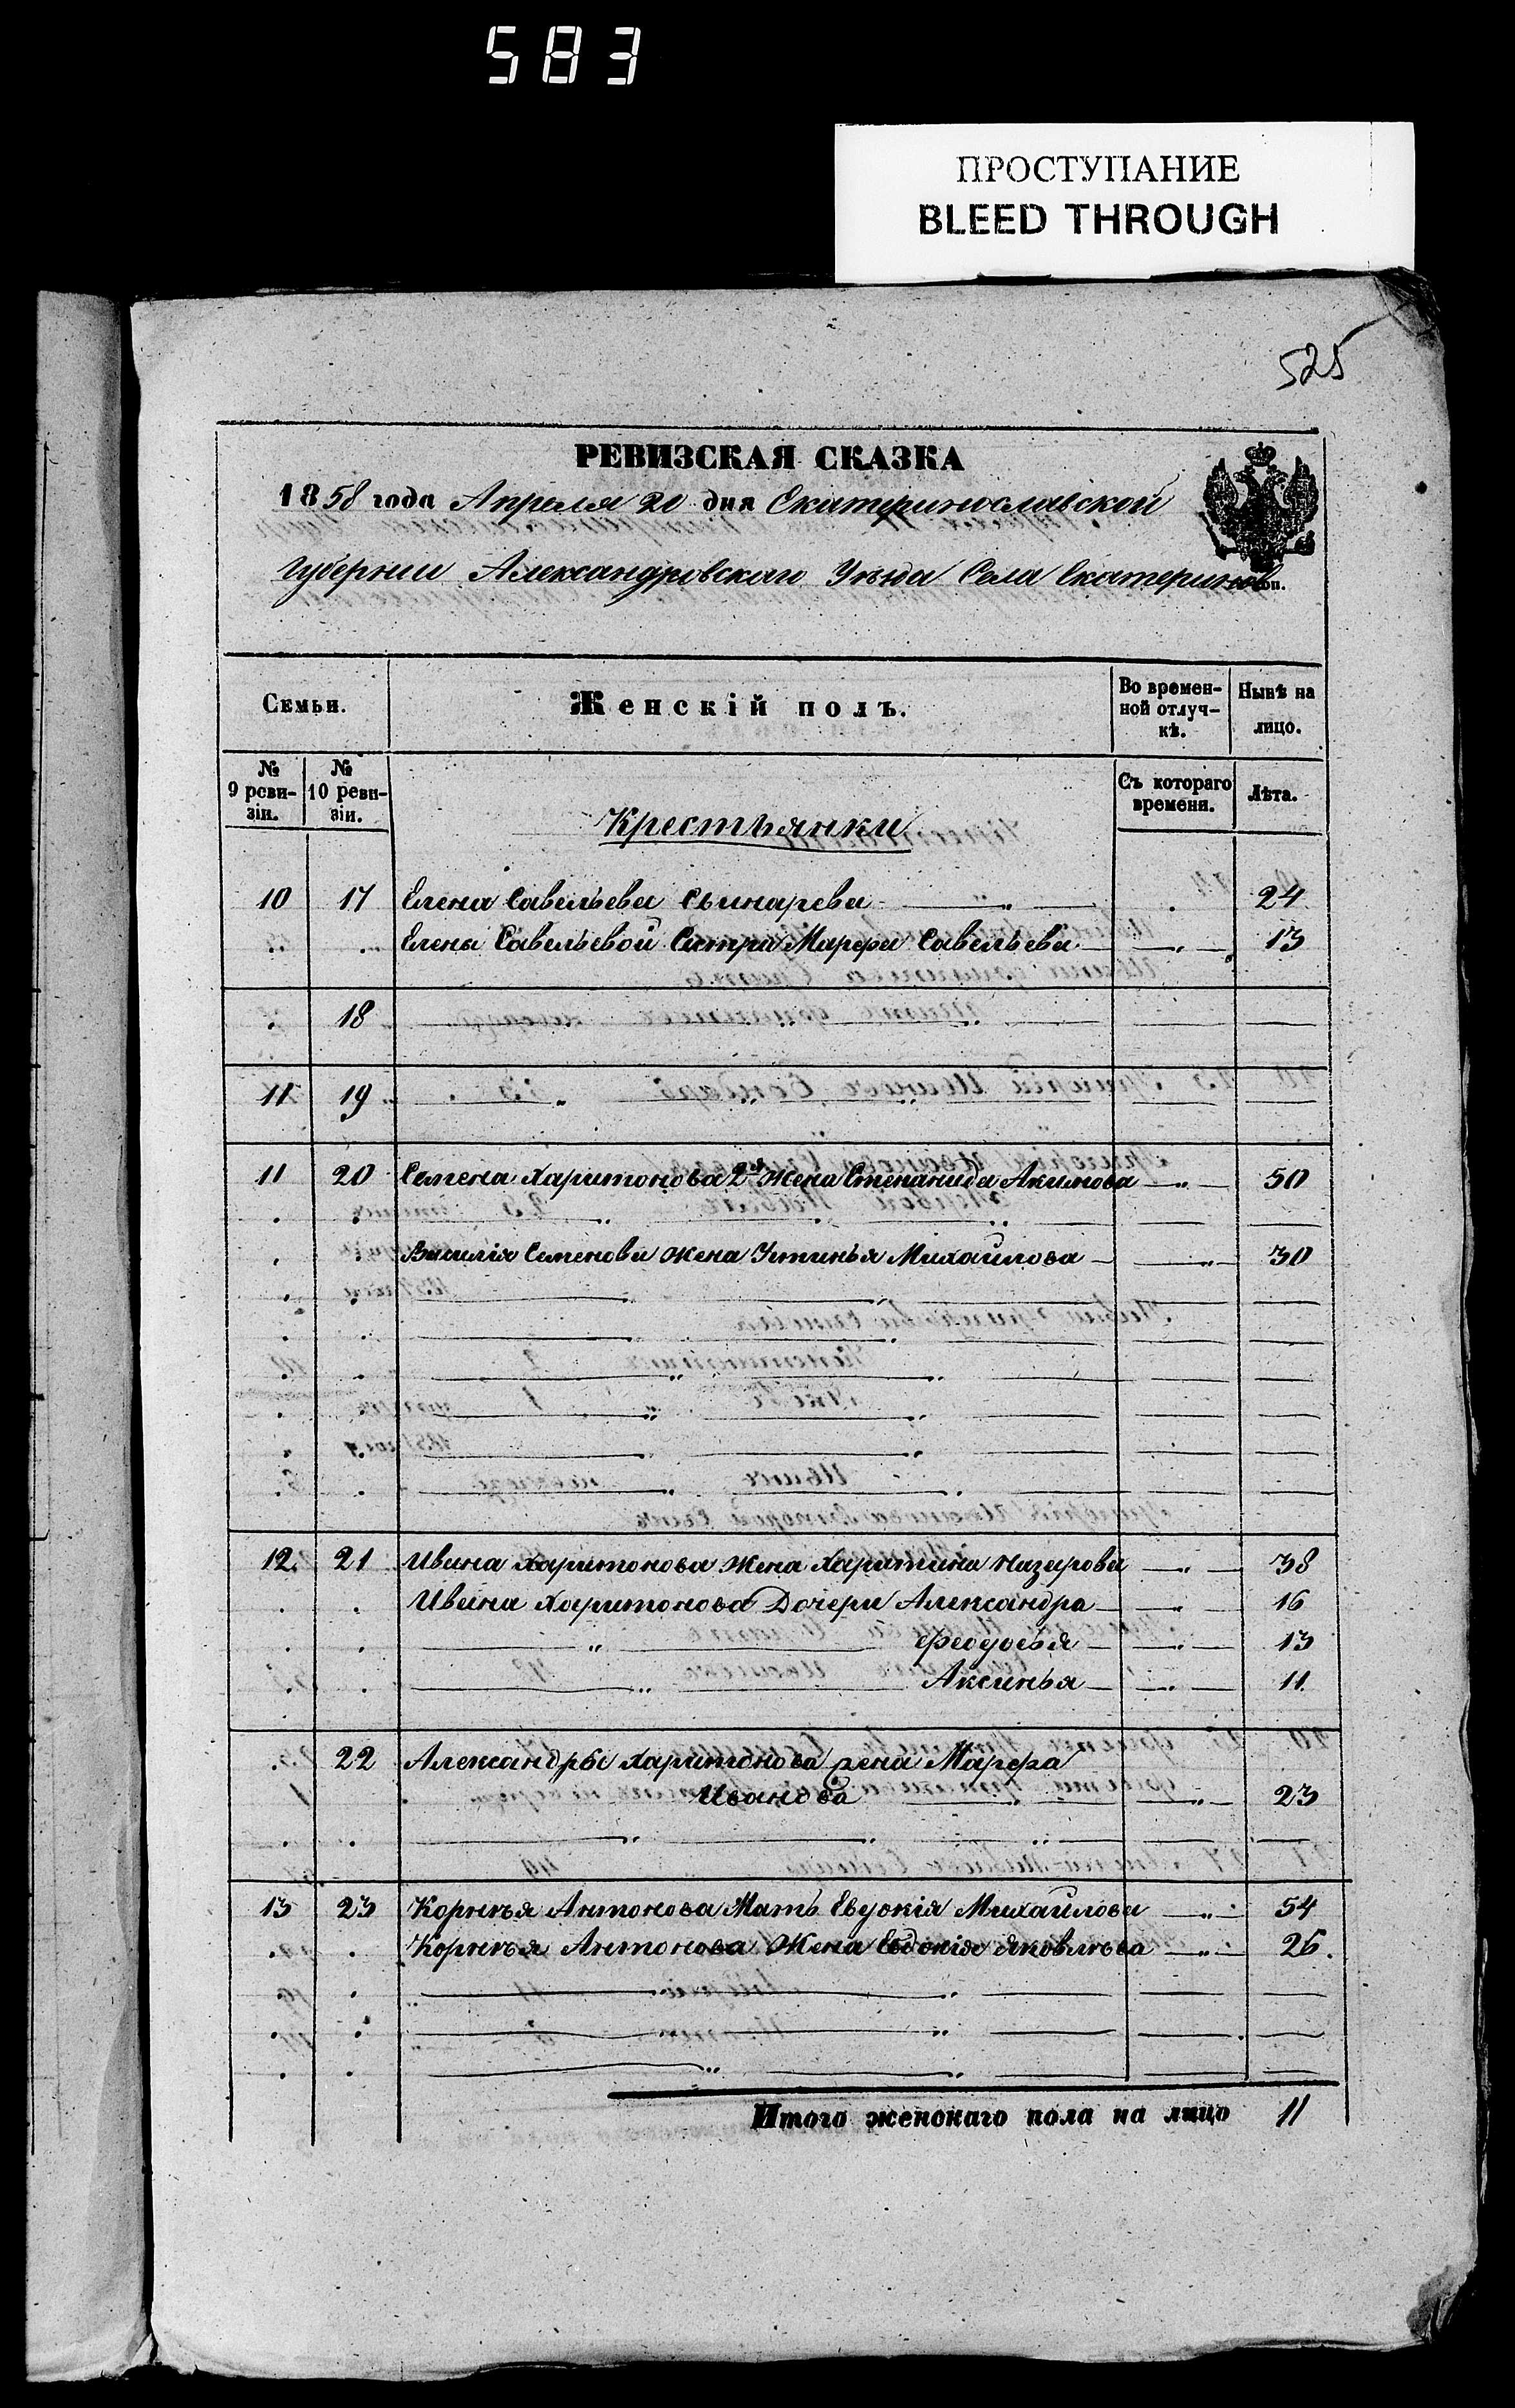 583
ПРОСТУПАНИЕ
BLEED THROUGH
525
РЕВИЗСКАЯ СКАЗКА
1858 года Апреля 20 дня Екатеринославской
Губернии Александровскаго Уѣзда Села Екатеринов
коп.
Семьи.
Женскій полъ.
Во времен-
ной отлуч-
кѣ.
Нынѣ на
лицо.
№
9 реви-
зіи.
№
10 реви-
зіи.
Съ котораго
времени.
Лѣта.
Крестьянки
10 17 Елена Савельева 24
Елены Савельевой Сестра Марфа Савельева 13
18
11 19
11 20 Семена Харитонова 2я жена Степанида Акимова 50
Василія Семенова жена Устинья Михайлова 30
12 21 Ивана Харитонова жена Харитина Назарова 38
Ивана Харитонова Дочери Александра 16
Феодосья 13
Аксинья 11
22 Александры Харитонова жена Марфа
Иванова 23
13 23 Корнѣя Антонова Мать Евдокія Михайлова 54
Корнѣя Антонова Жена Евдокія Яковлѣва 26.
Итого женскаго пола на лицо 11